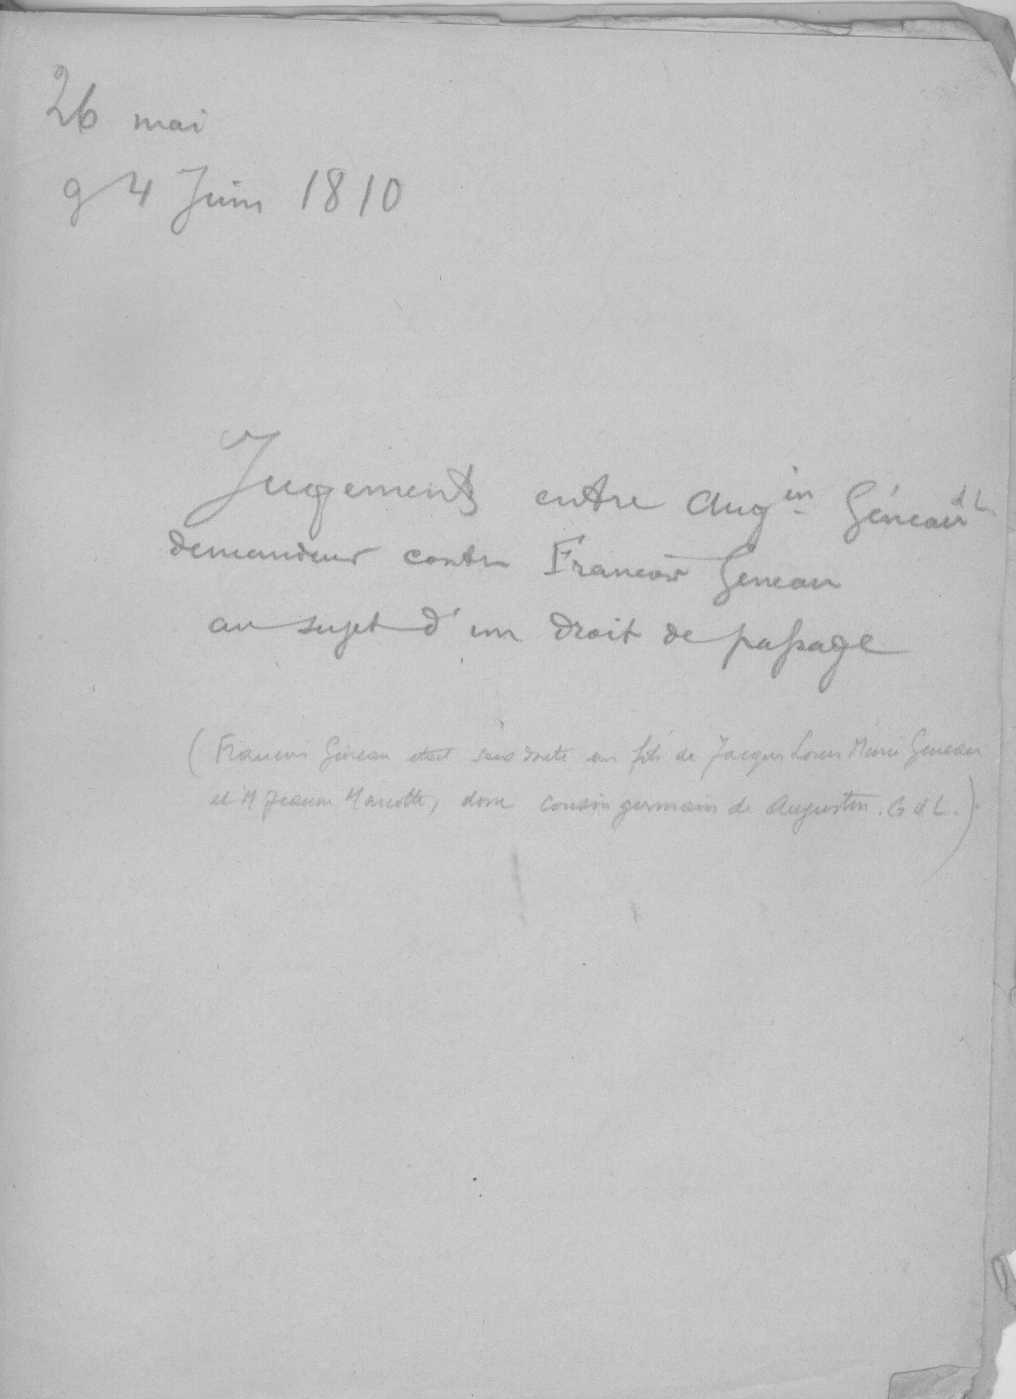 26 mai
9 4 Juin 1810
Jugements entre Augin Géneau d L.
demandeur contre Francois Geneau
au sujet d'un droit de passage
(Francois Géneau etait sans doute un fils de Jacques Louis Marie Geneau
et M Jeanne Marcotte, donc cousin germain de Augustin. G d L.)